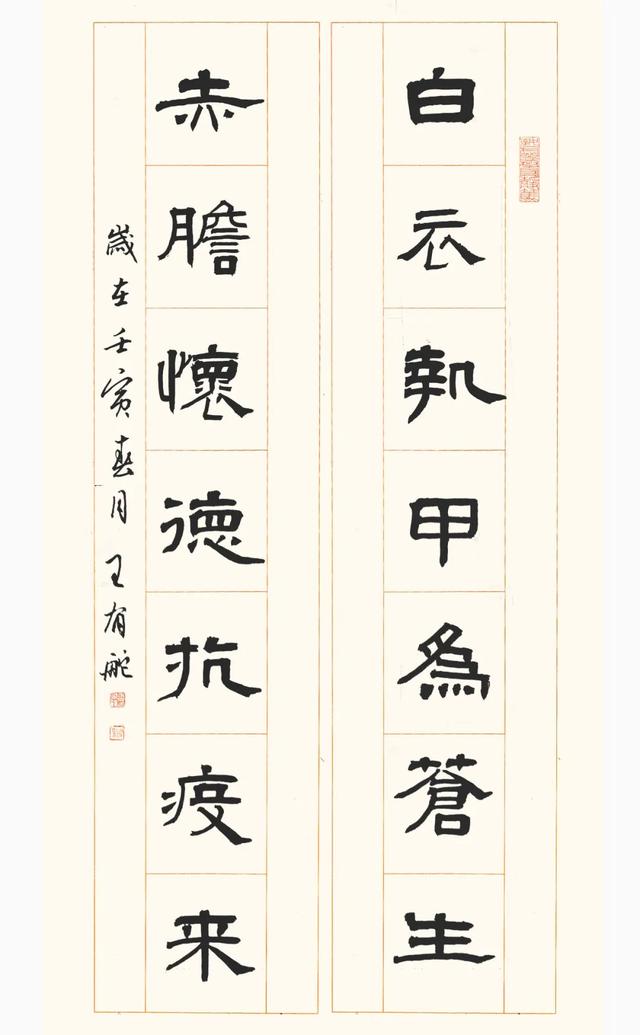 白衣執甲為蒼生
赤膽懷德抗疫来
歲在壬寅春月王有舵